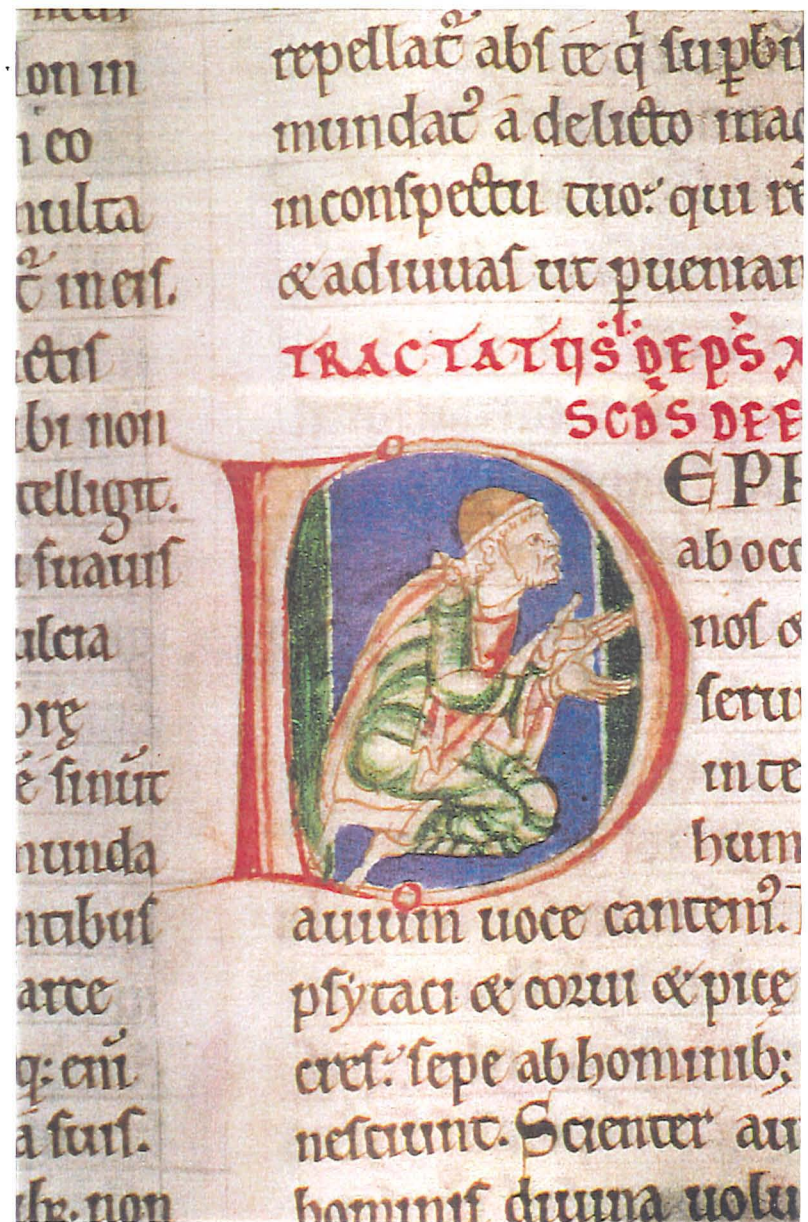 lon in
n eo
multa
tᷣ in eiſ.
ctiſ
ibi non
telligit.
i ſuauiſ
ulcia
brę
ē ſinūt
munda
ntibuſ
arce
q: eni̅
a ſuiſ.
non
repellatᷣ abſ te q̇ ſup̱bi
mundatᷣ a delicto
in conſpectu tuo: qui
& adiuuaſ ut p̱uenian
TRACTATUS DE PS̄
SCD̄S DE E
DEPR
ab occ
noſ &
ſeru
in te
hum
auium uoce cantem᷒.
pſytaci & corui & picę
creſ: ſepe ab hominib;
neſciunt. Scienter au
hominiſ diuina uolu